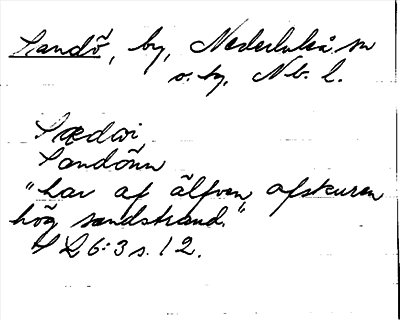 Sandö, by, Nederluleå sn
o. tg, Nb. l.
Sædwi
Sandönn
"har af älfven afskuren
hög sandstrand."
SL 6:3 s. 12.